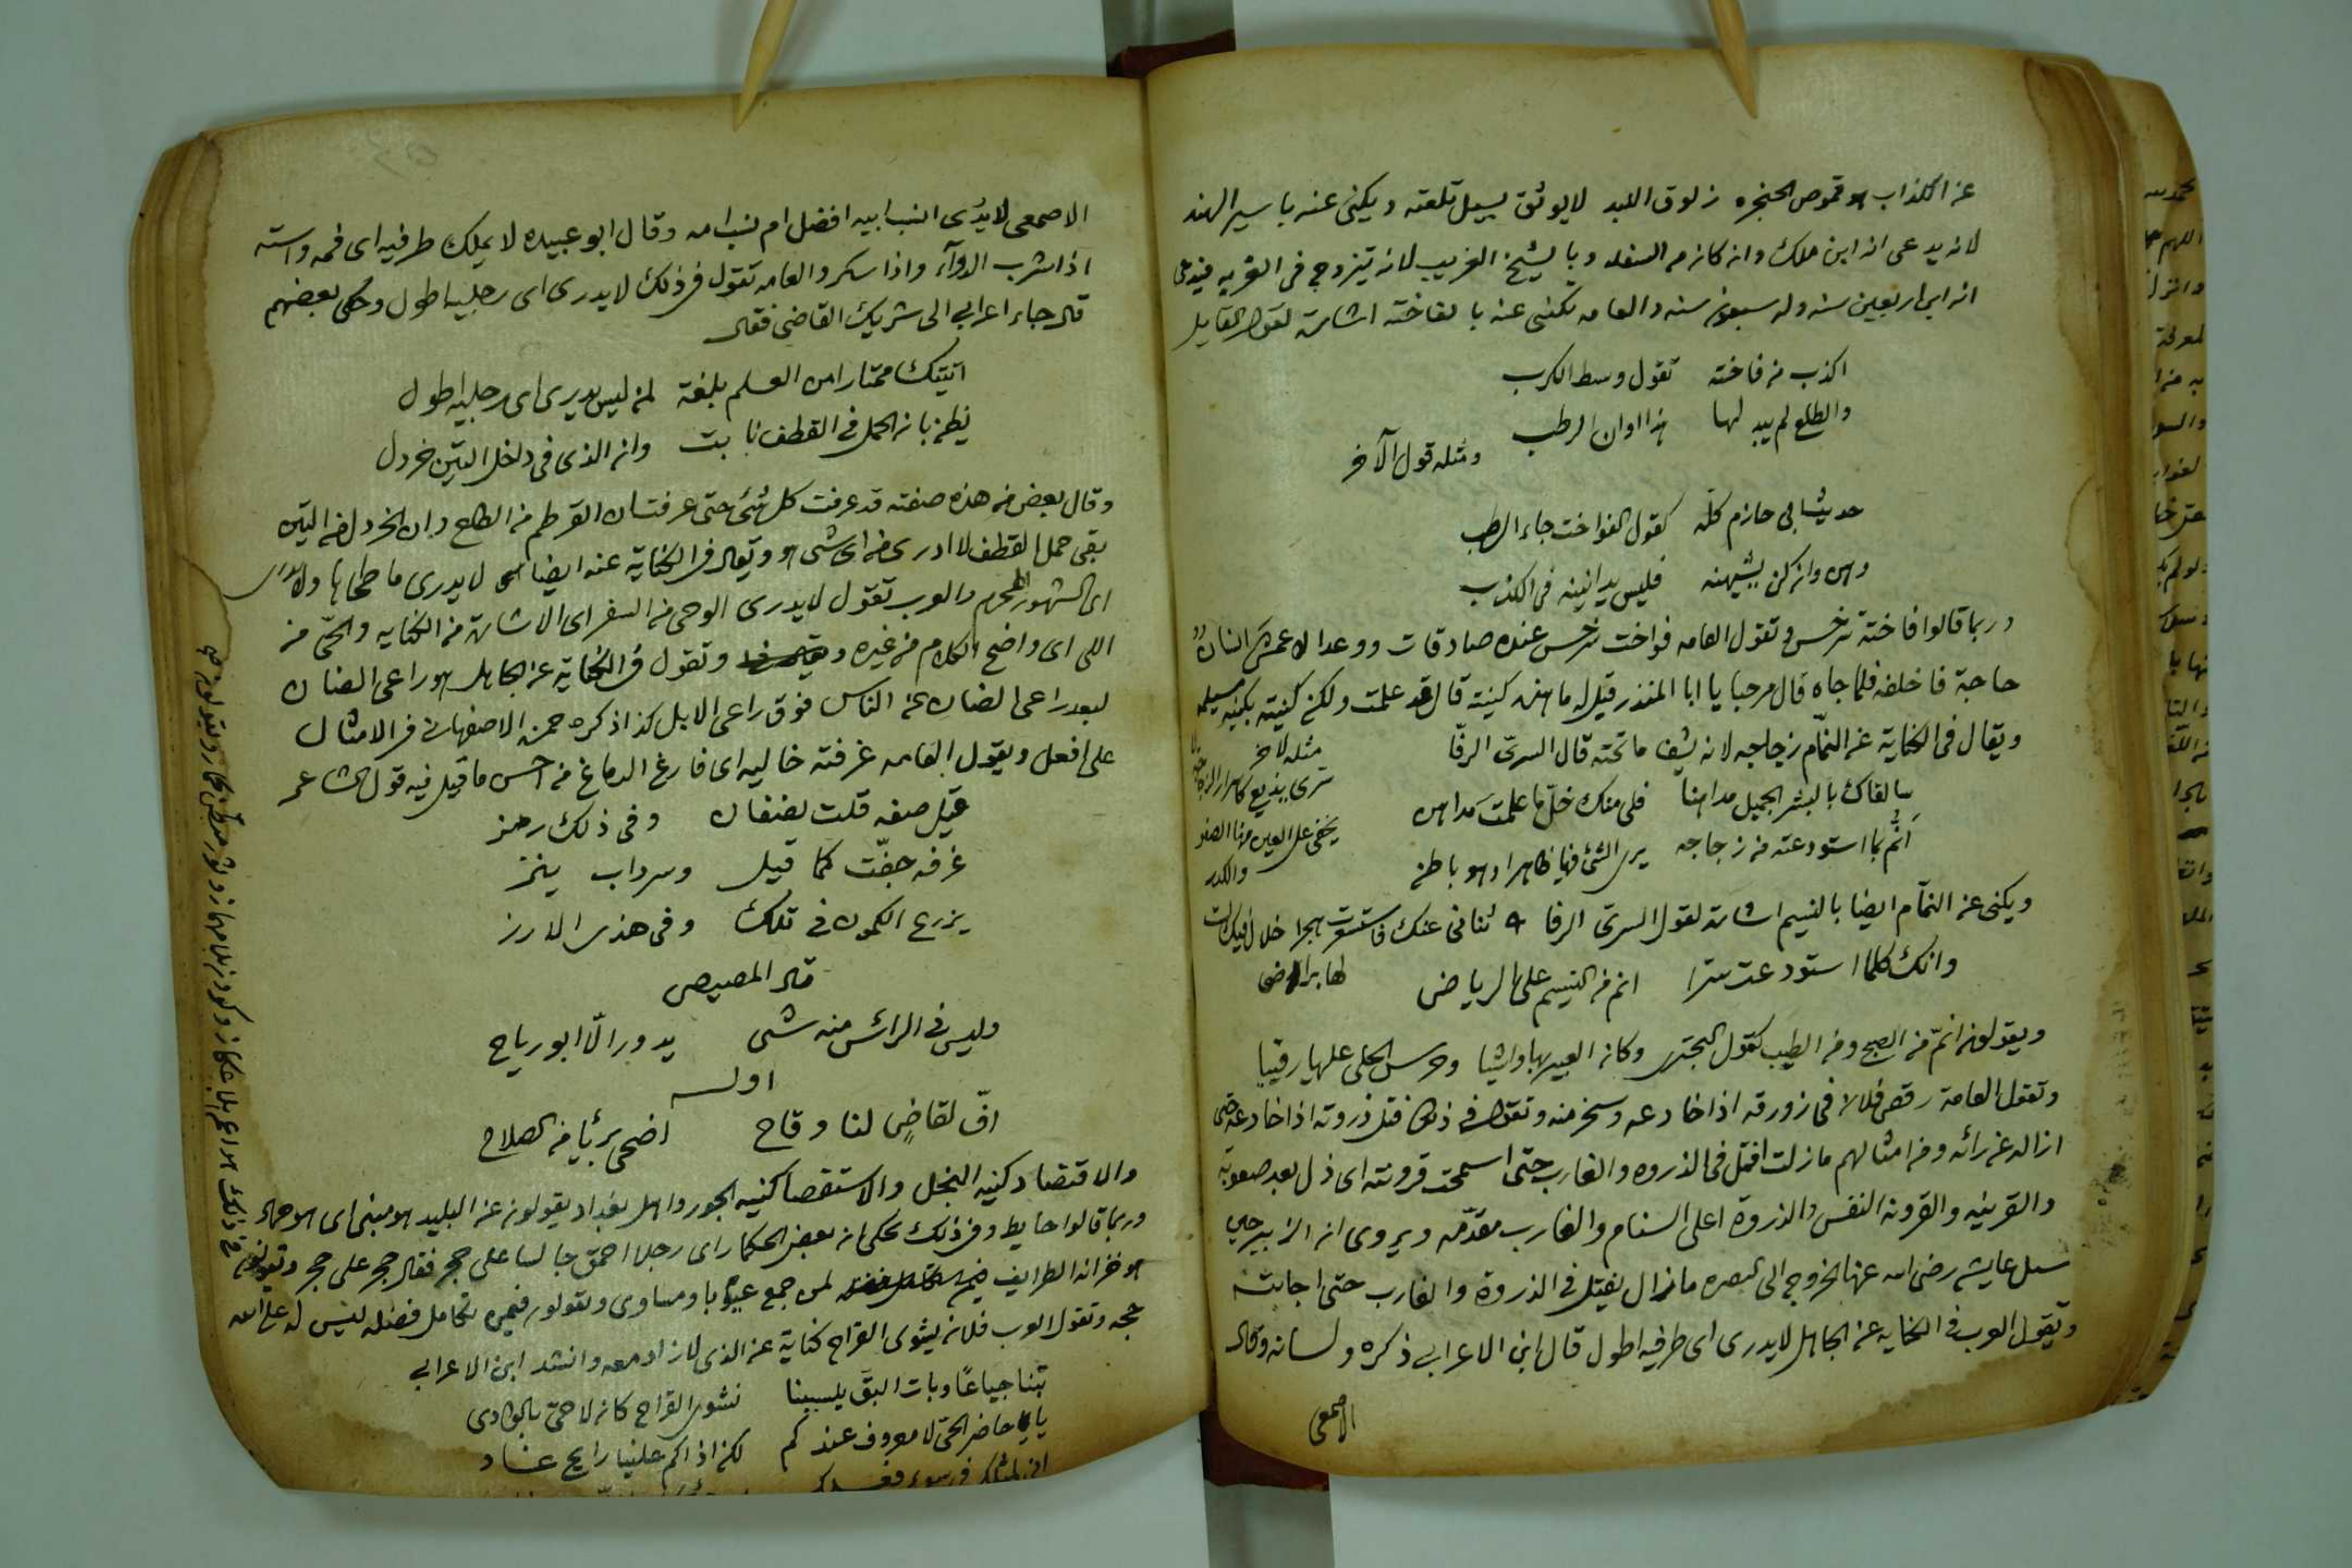 عن الكذاب هو قموص الحنجره زلوق اللبد لا يوثق بسيل تلعته ويكنى عنه باسير الهند
لانه يدعى انه ابن ملك وانه كان من السفله وبالشيخ الغريب لانه يتزوج فى القريه فيدعى
انه ابن اربعين سنه وله سبعون سنه والعامه تكنى عنه بالفاخته اشارة لقول القايل
اكذب من فاخته تقول وسط الكرب
والطلع لم يبد لها هذا اوان الرطب
ومثله قول الآخر
حديث ابى حازم كلّه كقول الفواخت جاء الرطب
وهن وان كن يشبهنه فليس يدانينه فى الكذب
وربما قالوا فاختة وتقول العامه فواخت عنده صادقات ووعد
حاجة فاخلفه فلما جاه قال مرحبا يا ابا المنذر قيل له ما هذه كنيته قال قد علمت ولكن كنيته بكنيه مسيلمه
ويقال فى الكناية عن النمّام زجاجه لانه يشف ما تحته قال السرى الرفا
سالقاك بالبشر الجميل مداهنا فلى منك خلّ ما علمت مداهن
أنمّ بما استودعته من زجاجه يرى الشئ فيها ظاهرا وهو باطن
مثله لاخر
يخفى على العين منها الصفو
والكدر
ويكنى عن النمّام ايضا بالنسيم اشارة لقول السرى الرفا ثنانى عنك فاستشعرت هجرا خلال فيك لست
لها براضى
وانك كلما استودعت سرا انم من النسيم على الرياض
ويقولون انمّ من الصبح ومن الطيب كقول البحترى وكان العبير بها واشيا وجرس الحلى عليها رقيبا
وتقول العامة رقص فلان فى زورقه اذا خادعه وسخر منه وتقول فى ذلك فتل ذروته اذا خادعه حتى
ازاله عن رائه ومن امثالهم ما زلت افتل فى الذروه والغارب حتى اسمحت قرونته اى ذل بعد صعوبته
والقرينه والقرونه النفس والذروة اعلى السنام والغارب مقدّمه ويروى ان الزبير حين
سال عايشه رضى الله عنها الخروج الى البصره ما زال يفتل فى الذروة والغارب حتى اجابته
وتقول العرب فى الكنايه عن الجاهل لا يدرى اى طرفيه اطول قال ابن الاعرابى ذكره ولسانه وقال
الاصمعى
الاصمعى لا يدرى انسب ابيه افضل ام نسب امه وقال ابو عبيده لا يملك طرفيه اى فمه واسته
اذا شرب الدوآء واذا سكر والعامه تقول فى ذلك لا يدرى اى رجليه اطول وحكى بعضهم
قال جاء اعرابى الى شريك القاضى فقال
اتيتك ممتارا من العلم بلغة لمن ليس يدرى اى رجليه اطول
يظن بان الحمل فى القطف نابت وان الذى فى داخل التين خردل
وقال بعض من هذه صفته قد عرفت كل شئ حتى عرفت ان القرطم من الطلح وان الخردل من التين
بقى حمل القطف لا ادرى من اى شى هو ويقال فى الكناية عنه ايضا لا يدرى ما طحاها ولا يدرى
اى الشهور المحرم والعرب تقول لا يدرى الوحى من السفر اى الاشارة من الكنايه والحىّ من
اللى اى واضح الكلام من غيره وتقول فى الكناية عن الجاهل هو راعى الضان
لبعد راعى الضان عن الناس فوق راعى الابل كذا ذكره حمزه الاصفهانى فى الامثال
على افعل ويقول العامه غرفته خاليه اى فارغ الدماغ من احسن ما قيل فيه قول الشاعر
قيل صفه قلت نصفان وفى ذلك رمز
غرفه جفّت كما قيل وسرداب ينز
يزرع الكمون فى تلك وفى هذى الارز
قال المصيصى
وليس فى الراس منه شى يدور الّا ابو رياح
اوله
افّ لقاضٍ لنا وقاح اضحى بريًا من الصلاح
والاقتصاد كنيه البخل والاستقصا كنيه الجور واهل بغداد يقولون عن البليد هو مبنى اى هو حمار
وربما قالوا حايط وفى ذلك حكى ان بعض الحكما راى رجلا احمق جالسا على حجر فقال حجر على حجر
هو خزانه الطرايف لمن جمع عيوبا ومساوى ويقولون فيمن تكامل فضله ليس له على الله
حجه وتقول العرب فلان يشوى القراح كناية عن الذى لا زاد معه وانشد ابن الاعرابى
بتنا جياعًا وبات البقّ يلسبنا نشوى القراح كان لا حىّ بالوادى
يا حاضر الحى لا معروف عندكم لكن اذاكم علينا رايح غاد